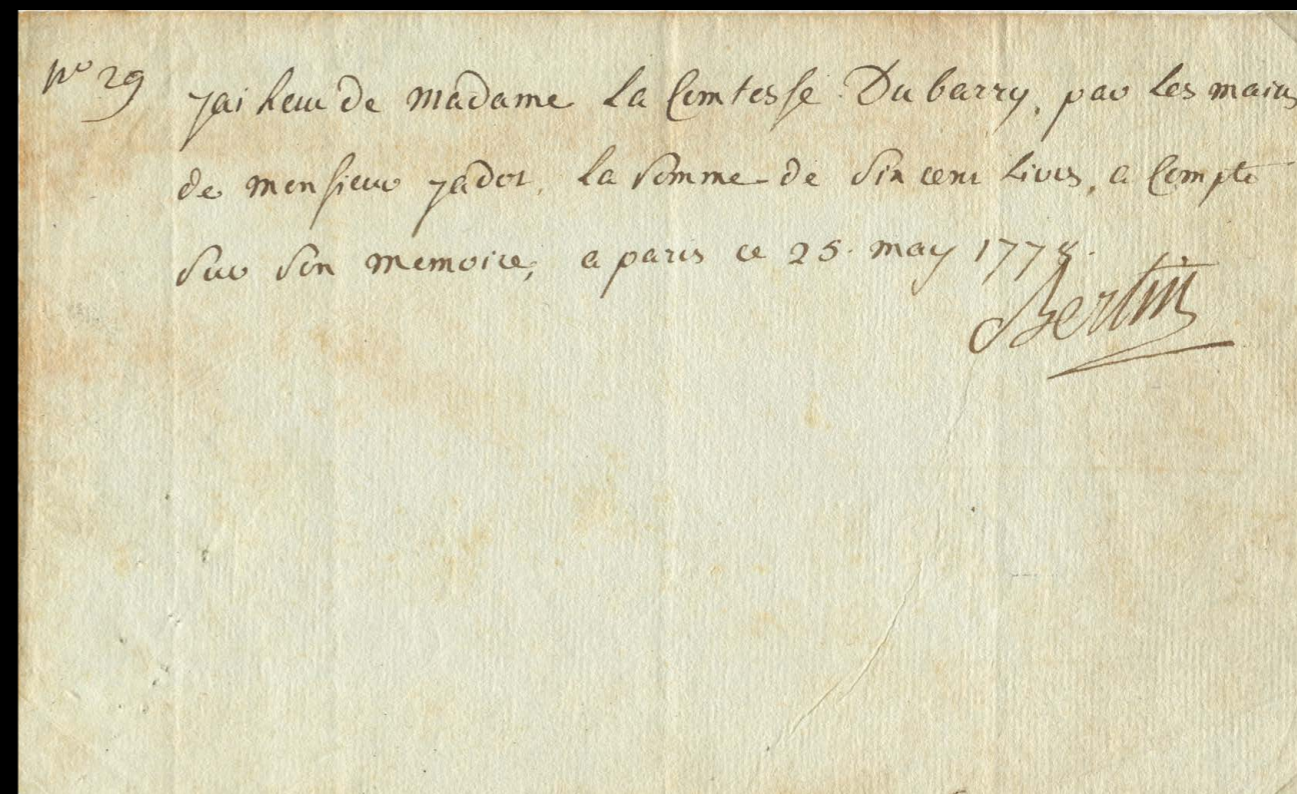 n.º 29 jai Recu de madame La Comtesse Dubarry, par Les mains
de monsieur jadot, La Somme de Six cent Livres, a Compte
Sur Son memoire, a paris ce 25. may 1778.
Bertin